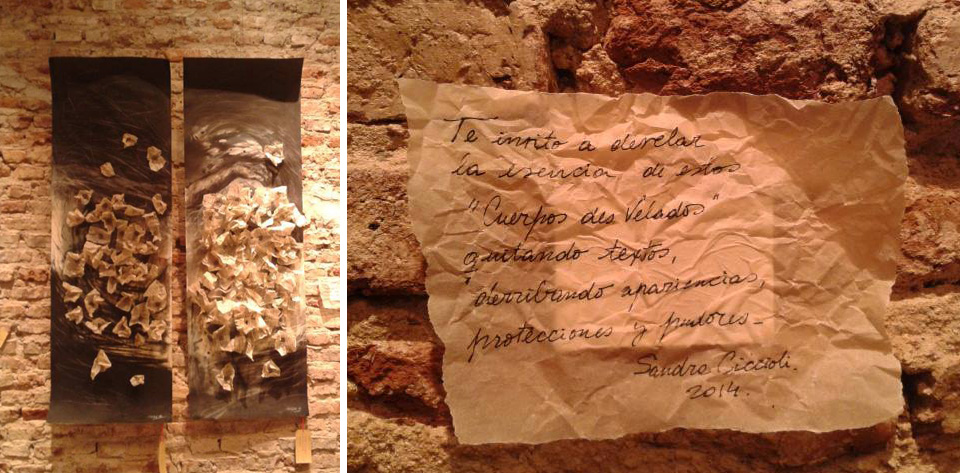 Te invito a develar
la esencia, de estos
"Cuerpos des Velados"
quitando textos,
derribando apariencias,
protecciones y pudores-
Sandra Ciccioli.
2014.